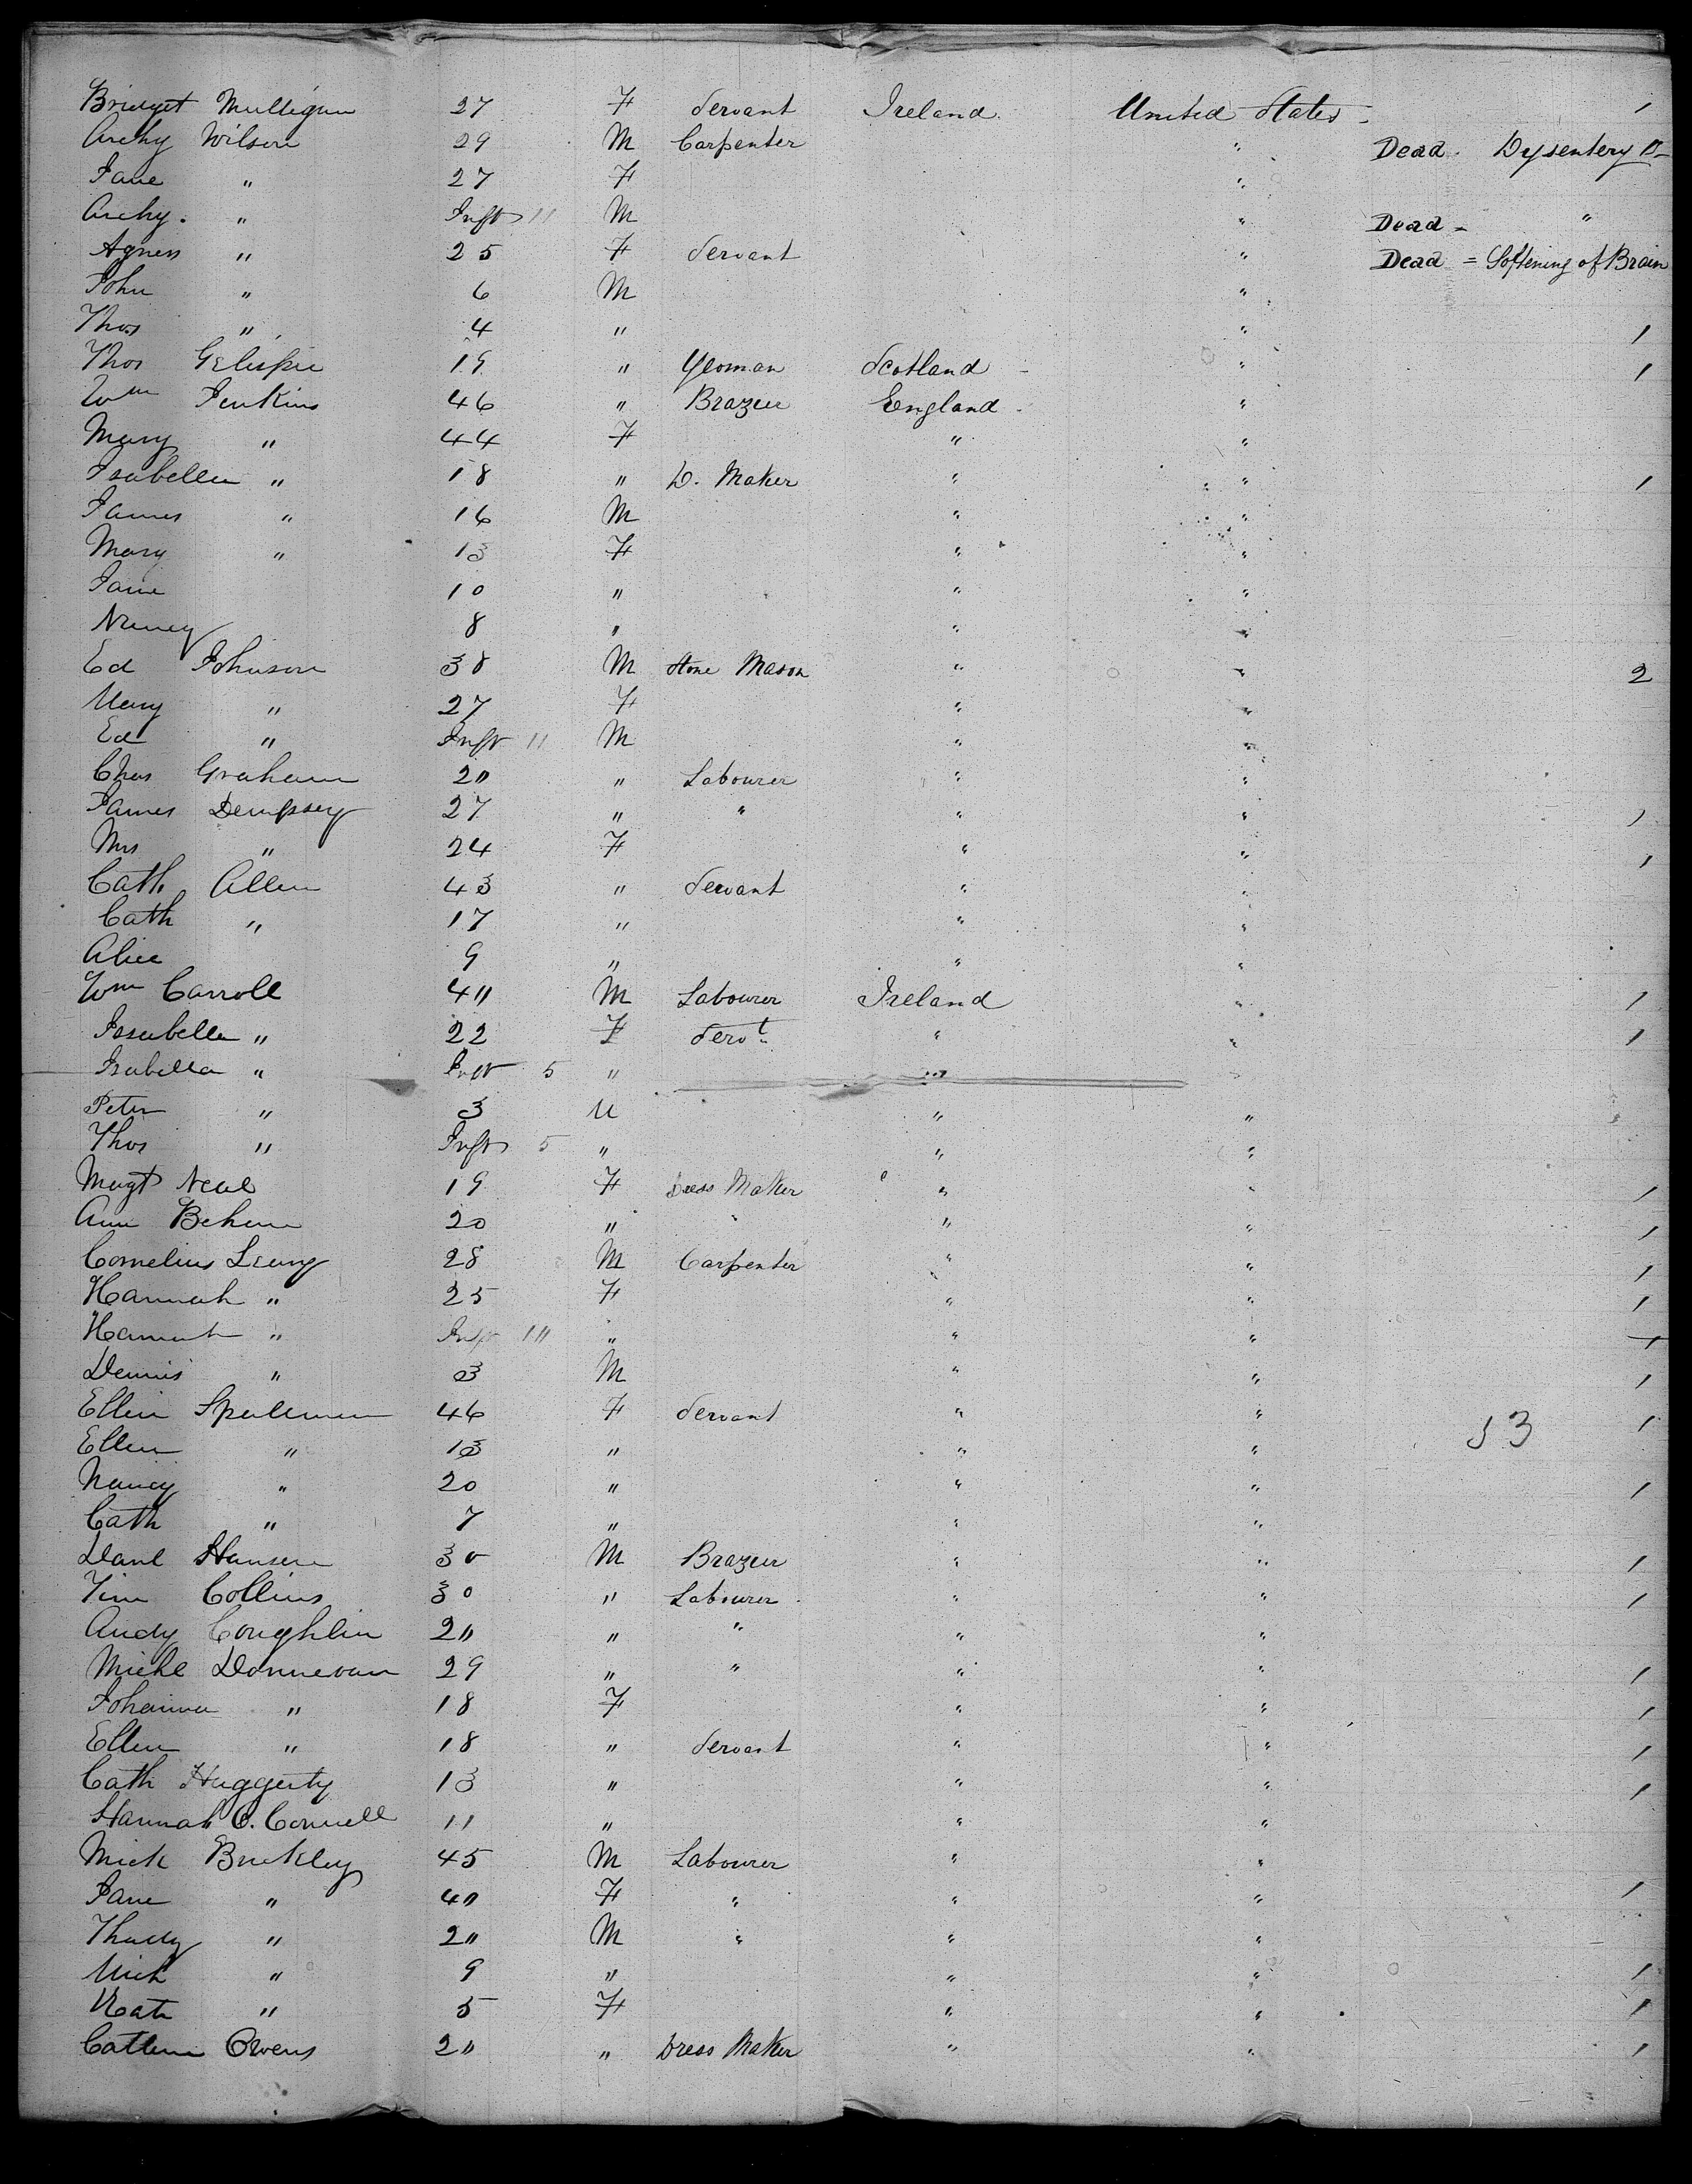 Bridget Mulligan 27 F Servant Ireland United States - 1
Archy Wilson 29 M Carpenter " Dead - Dysentery
Jane " 27 F "
Archy. " Inft 11 M " Dead - "
Agness " 25 F Servant " Dead = Softening of Brain
John " 6 M "
Thos " 4 " " 1
Thos 19 " Yeoman Scotland " 1
Wm Jenkins 46 " Brazier England "
Mary " 44 F " "
Isabella " 18 " D. Maker " " 1
James " 16 M " "
Mary " 13 F " "
Jane 10 " " "
Nancy 8 " " "
Ed Johnson 38 M Stone Mason " " 2
Mary " 27 F " "
Ed " Inft 11 M " "
Chas Graham 20 " Labourer " "
James Dempsey 27 " " " " 1
Mrs " 24 F " " 1
Cath Allen 43 " Servant " "
Cath " 17 " " "
Alice 9 " " "
Wm Carroll 40 M Labourer Ireland " 1
Issabella " 22 F Servt " " 1
Isabella " Inft 5 " " "
Peter " 3 M " "
Thos " Inft 5 " " "
Magt Neal 19 F Dress Maker " " 1
Ann 20 " " " " 1
Cornelius 28 M Carpenter " " 1
Hannah " 25 F " " 1
Hannah " Inft 10 " " " 1
Dennis " 3 M " " 1
Ellen 46 F Servant " " 53 1
Ellen " 13 " " "
Nancy " 20 " " " 1
Cath " 7 " " "
Danl 30 M Brazier " " 1
Tim Collins 30 " Labourer " " 1
Andy Coughlin 20 " " " "
Michl Donnevan 29 " " " " 1
Johanna " 18 F " " 1
Ellen " 18 " Servant " " 1
Cath Haggerty 13 " " " 1
Hannah O. Connell 11 " " "
Mick Buckley 45 M Labourer " "
Jane " 40 F " " " 1
Thady " 20 M " " "
Mich " 9 " " " 1
Kate " 5 F " " 1
Owens 20 " Dress Maker " " 1